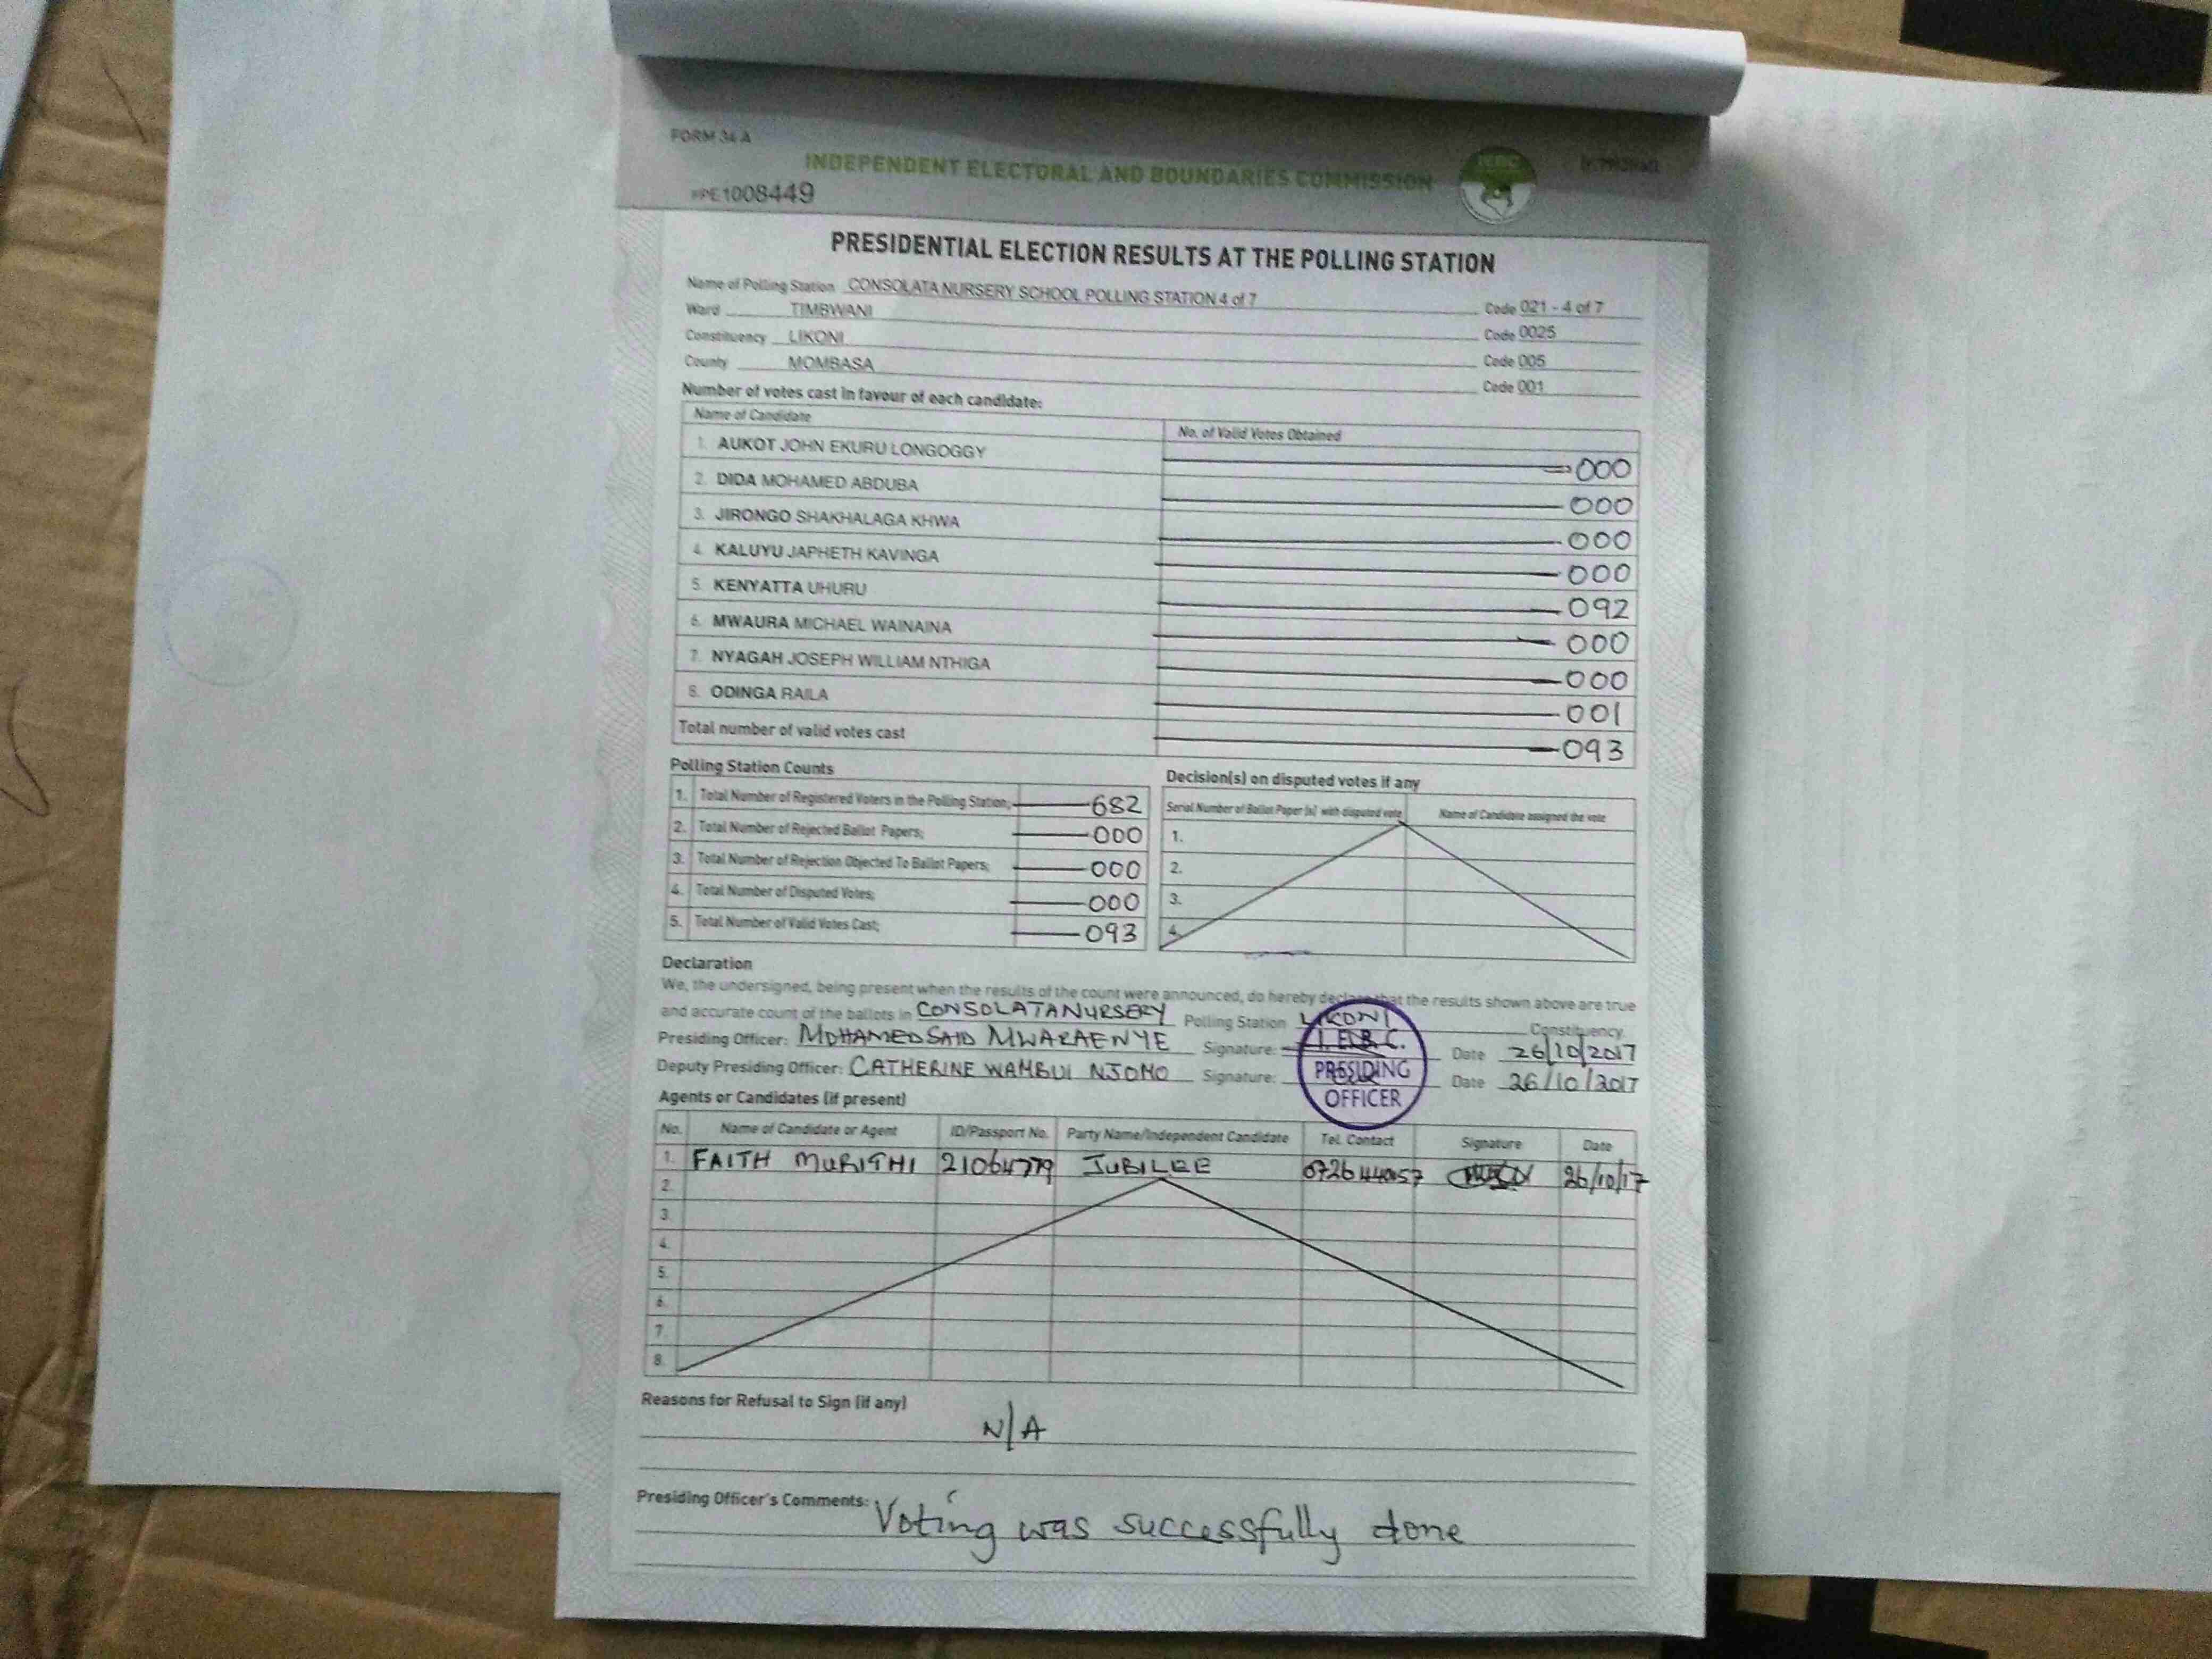 FORM 34 A
INDEPENDENT ELECTORAL AND BOUNDARIES COMMISSION
1008449
PRESIDENTIAL ELECTION RESULTS AT THE POLLING STATION
Name of Polling Station CONSOLATA NURSERY SCHOOL POLLING STATION 4 of 7 Code 021 - 4 of 7
Ward TIMBWANI Code 0025
Constituency LIKONI Code 005
County MOMBASA Code 001
Number of votes cast in favour of each candidate:
Name of Candidate No. of Valid Votes Obtained
1. AUKOT JOHN EKURU LONGOGGY 000
2. DIDA MOHAMED ABDUBA 000
3. JIRONGO SHAKHALAGA KHWA 000
4. KALUYU JAPHETH KAVINGA 000
5. KENYATTA UHURU 092
6. MWAURA MICHAEL WAINAINA 000
7. NYAGAH JOSEPH WILLIAM NTHIGA 000
8. ODINGA RAILA 001
Total number of valid votes cast 093
Polling Station Counts
1. Total Number of Registered Voters in the Polling Station; 682
2. Total Number of Rejected Ballot Papers; 000
3. Total Number of Rejection Objected To Ballot Papers; 000
4. Total Number of Disputed Votes; 000
5. Total Number of Valid Votes Cast; 093
Decision(s) on disputed votes if any
Serial Number of Ballot Paper (s) with disputed vote Name of Candidate assigned the vote
1.
2.
3.
4.
Declaration
We, the undersigned, being present when the results of the count were announced, do hereby declare that the results shown above are true
and accurate count of the ballots in CONSOLATA NURSERY Polling Station LIKONI Constituency.
Presiding Officer: MOHAMED SAID MWARAENYE Signature: Date 26/10/2017
Deputy Presiding Officer: CATHERINE WAMBUI NJOMO Signature: Date 26/10/2017
I.E.B.C.
PRESIDING
OFFICER
Agents or Candidates (if present)
No. Name of Candidate or Agent ID/Passport No. Party Name/Independent Candidate Tel. Contact Signature Date
1. FAITH MURITHI 21064779 JUBILEE 26/10/17
2.
3.
4.
5.
6.
7.
8.
Reasons for Refusal to Sign (if any)
N/A
Presiding Officer's Comments: Voting was successfully done